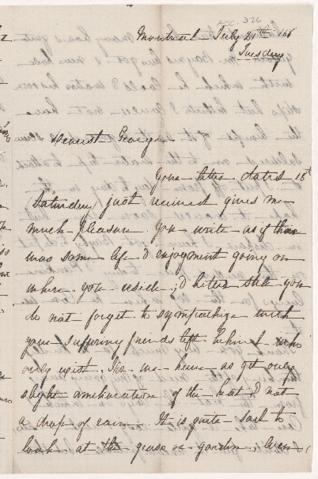 Montreal July 21st '66
Tuesday
Dearest George
Your letter dated 18th
Saturday just received gives me
much pleasure. You write as if there
was some life & enjoyment going on
where you reside; & better still you
do not forget to sympathize with
your suffering friends left behind who
only exist. For we have as yet only
slight amelioration of the heat & not
a drop of rain. It is quite sad to
look at the grass or garden; even